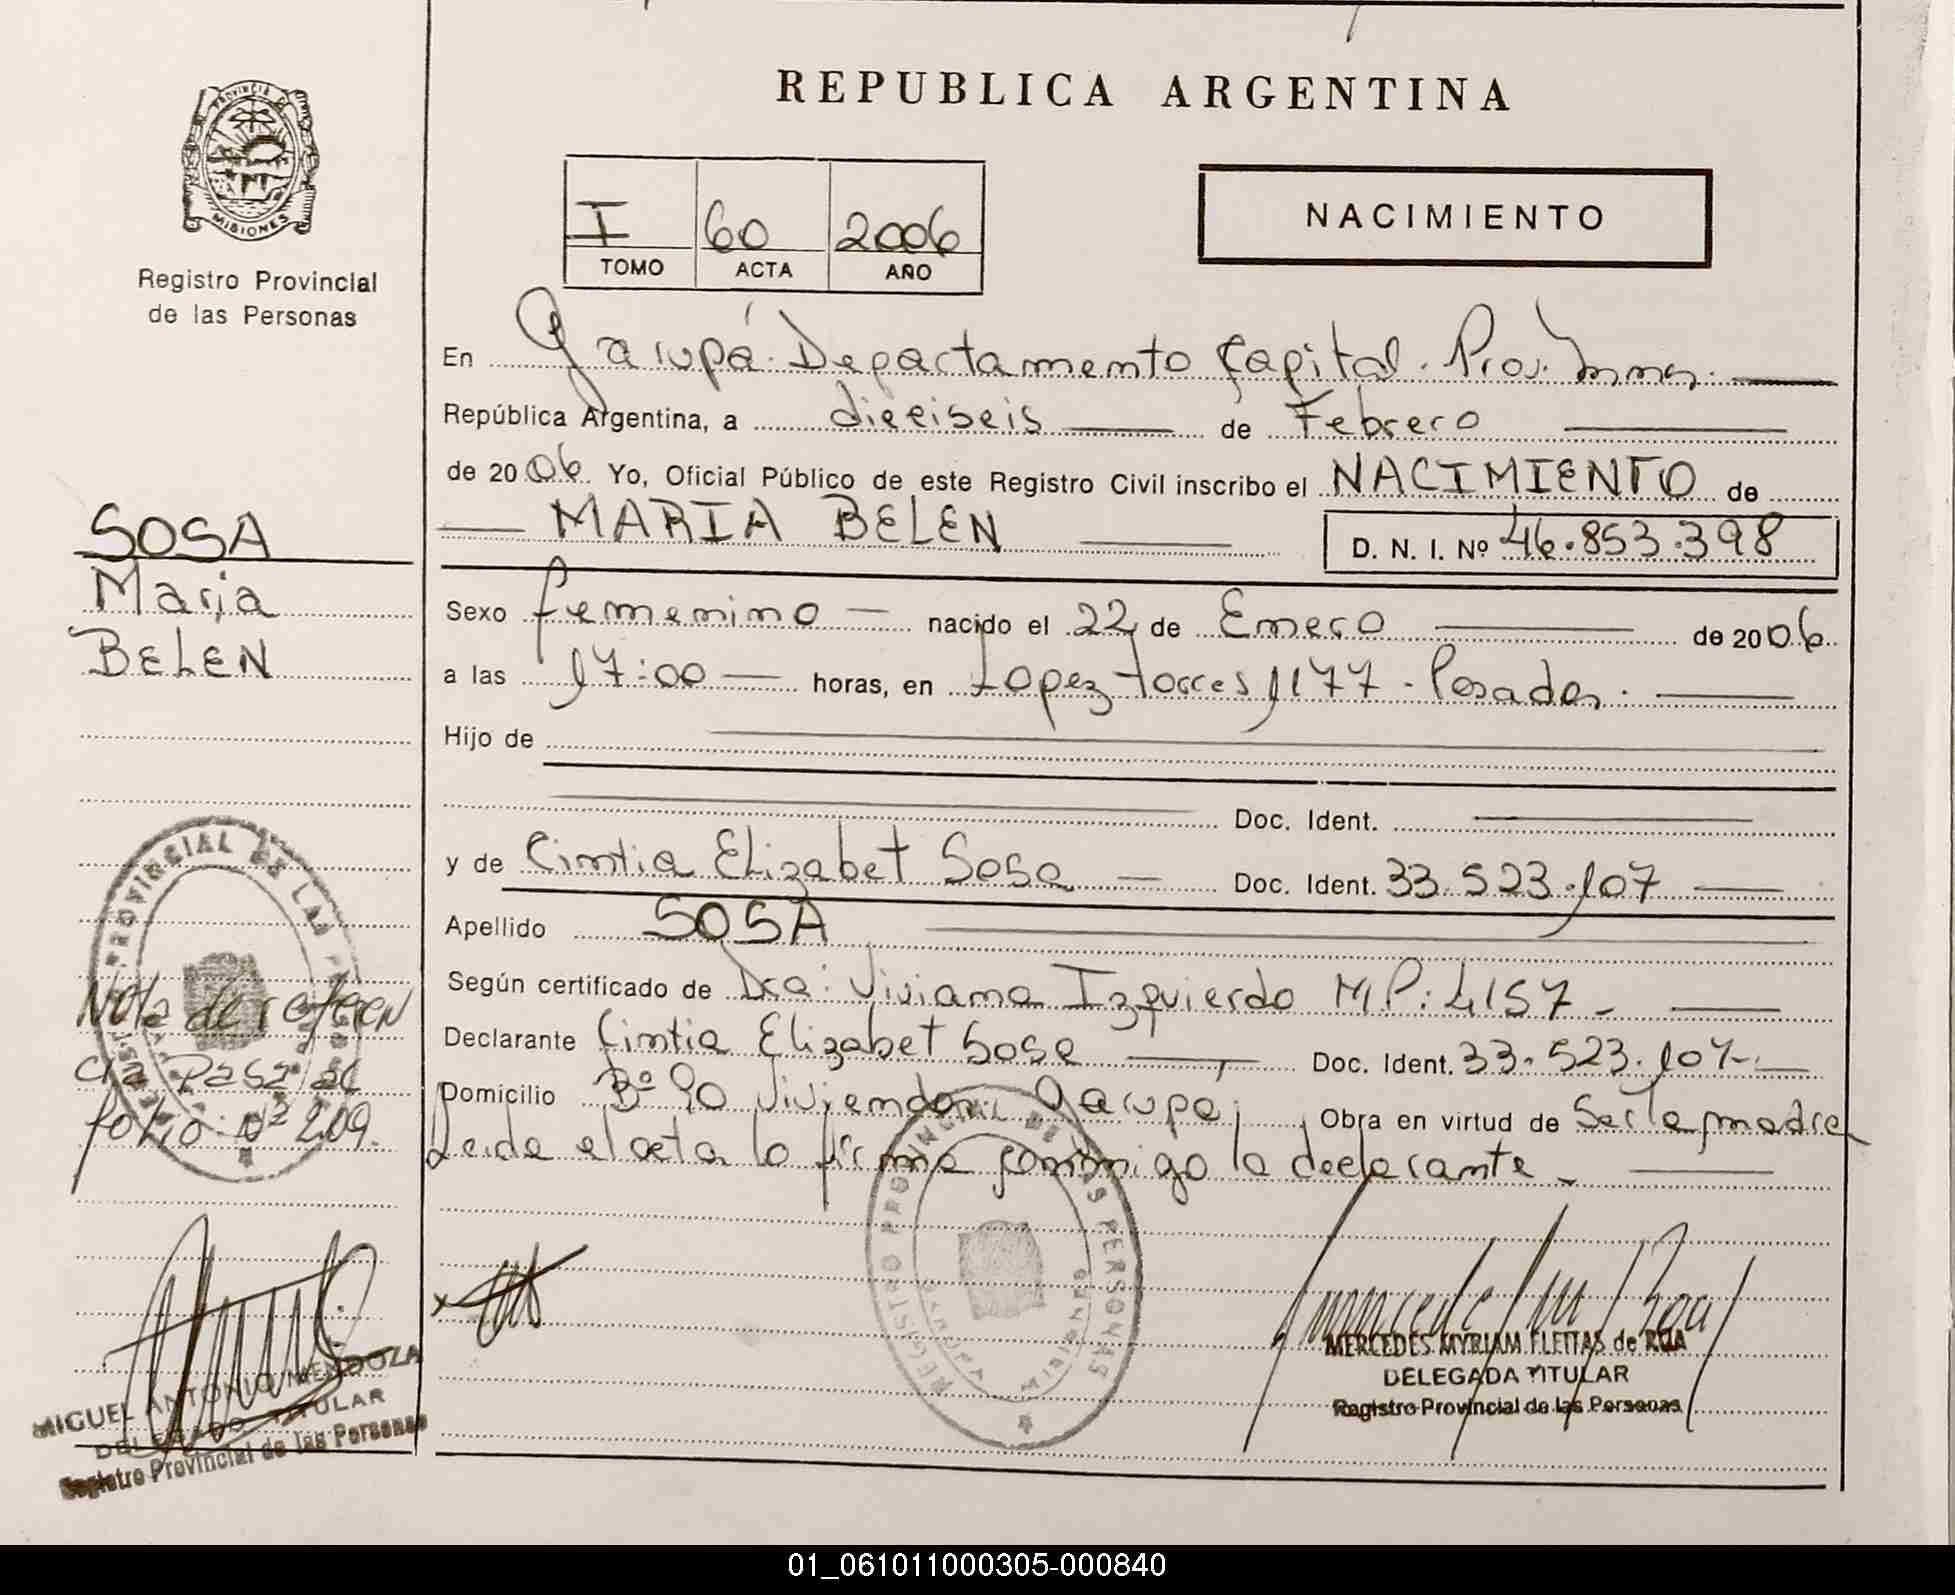 REPUBLICA ARGENTINA
PROVINCIA DE
MISIONES
Registro Provincial
de las Personas
I 60 2006
TOMO ACTA AÑO
NACIMIENTO
En Garupá. Departamento Capital. Prov. Mnes.
República Argentina, a dieciseis de Febrero
de 2006 Yo, Oficial Público de este Registro Civil inscribo el NACIMIENTO de
MARIA BELEN D. N. I. Nº 46.853.398
SOSA
Maria
BELEN
Sexo femenino nacido el 22 de Enero de 2006
a las 17:00 horas, en Lopez Torres 1177 - Posadas.
Hijo de
Doc. Ident.
y de Cintia Elizabet Sosa Doc. Ident. 33.523.107
Apellido SOSA
Según certificado de Dra: Viviana Izquierdo M.P: 4157
Declarante Cintia Elizabet Sosa Doc. Ident. 33.523.107
Domicilio Bº 90 Viviendas Garupá Obra en virtud de Ser la madre
Leida el acta la firma conmigo la declarante.
Nota de referen
cia pasa al
folio Nº 209.
REGISTRO PROVINCIAL DE LAS PERSONAS
MIGUEL ANTONIO MENDOZA
DELEGADO TITULAR
Registro Provincial de las Personas
MERCEDES MYRIAM FLEITAS de RUA
DELEGADA TITULAR
Registro Provincial de las Personas
01_061011000305-000840